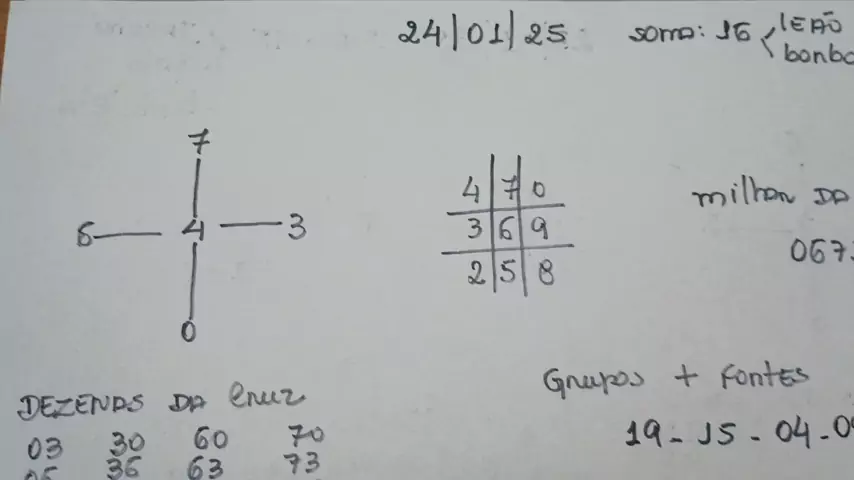 24/01/25 soma: 16 LEÃO
7
6 4 3
0
4 7 0
3 6 9
2 5 8
milhar DA
DEZENAS DA CRUZ
03 30 60 70
36 63 73
Grupos + Fontes
19 - 15 - 04 -